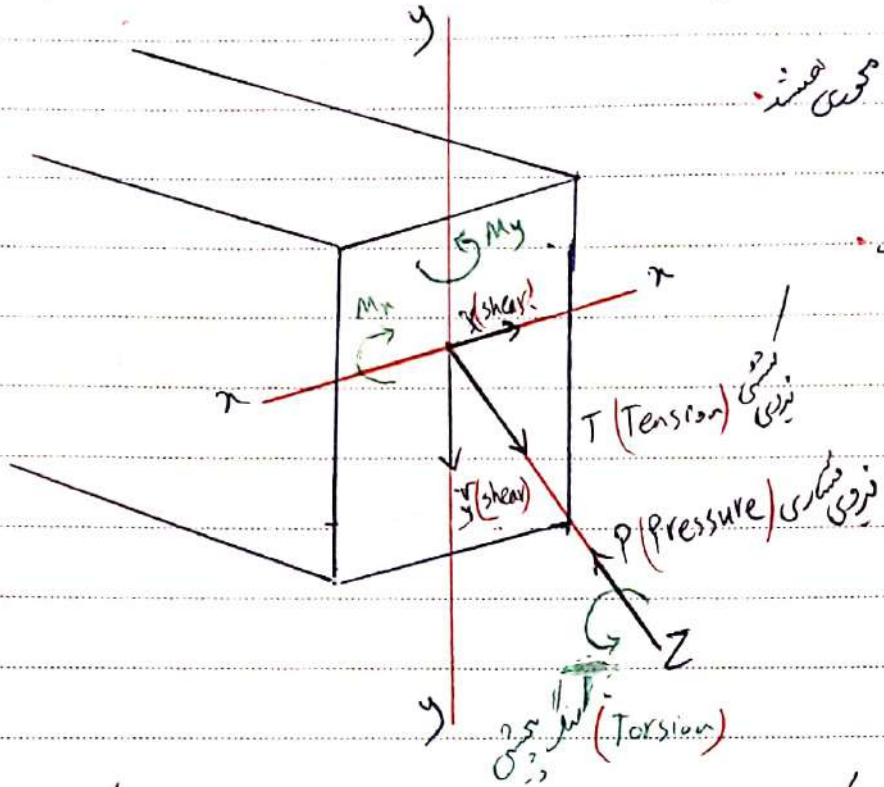 y
محوری هستند.
My
x
Mx
x(shear)
x
T (Tension) نیروی کششی
y(shear)
P (Pressure) نیروی فشاری
Z
y
لنگر پیچشی (Torsion)